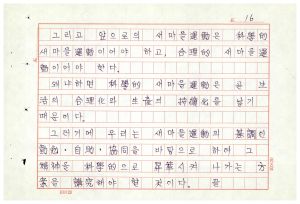 16
그리고 앞으로의 새마을運動은 科學的
새마을運動이어야 하고, 合理的 새마을運
動이어야 한다.
왜냐하면 科學的 새마을運動은 곧 生
活의 合理化와 生産의 持續化를 낳기
때문이다.
그렇기에 우리는 새마을運動의 基調인
勤勉·自助·協同을 바탕으로 하여 그
精神을 科學的으로 昇華시켜 나가는 方
案을 講究해야 할 것이다. 끝